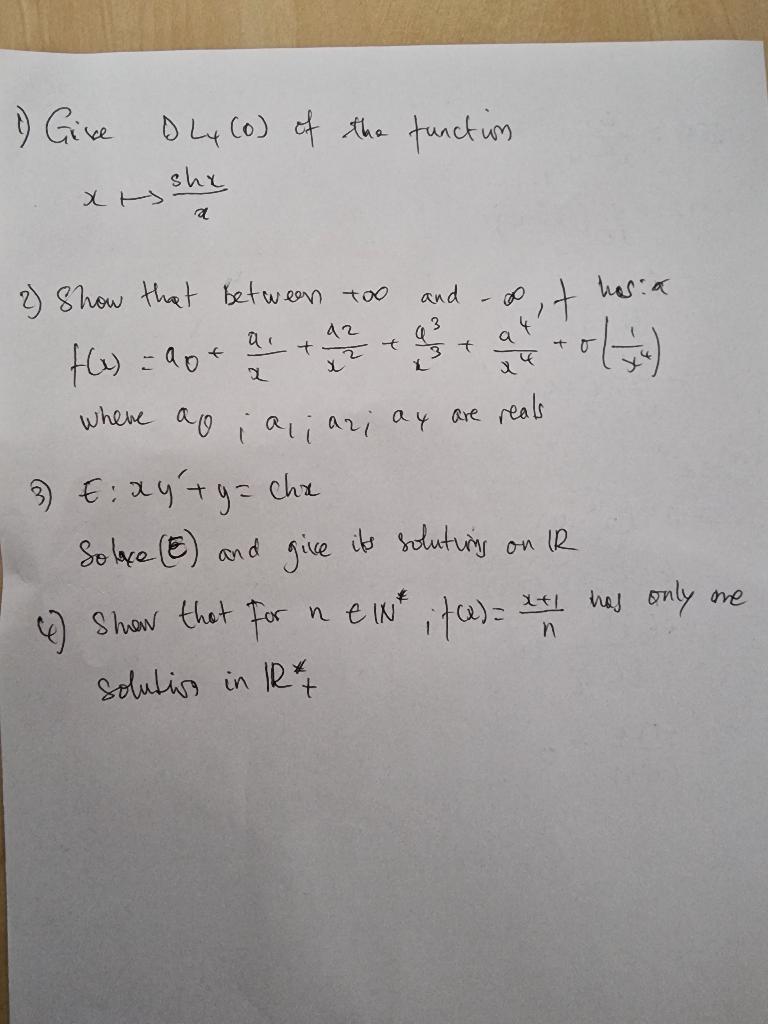 1) Give DL4(0) of the function
x ↦ shx/x
2) Show that between +∞ and -∞, f has: a
f(x) = a0 + a1/x + a2/x² + a³/x³ + a⁴/x⁴ + o(1/x⁴)
where a0; a1; a2; a4 are reals
3) E: xy'+y = chx
Solve (E) and give its solutions on IR
4) Show that for n ∈ IN*; f(x) = x+1/n has only one
solution in IR*+